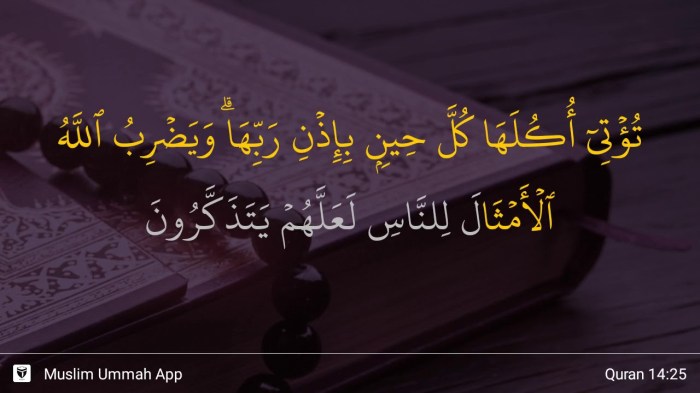 تُؤۡتِيٓ أُكُلَهَا كُلَّ حِينِۭ بِإِذۡنِ رَبِّهَاۗ وَيَضۡرِبُ ٱللَّهُ
ٱلۡأَمۡثَالَ لِلنَّاسِ لَعَلَّهُمۡ يَتَذَكَّرُونَ
Muslim Ummah App
Quran 14:25